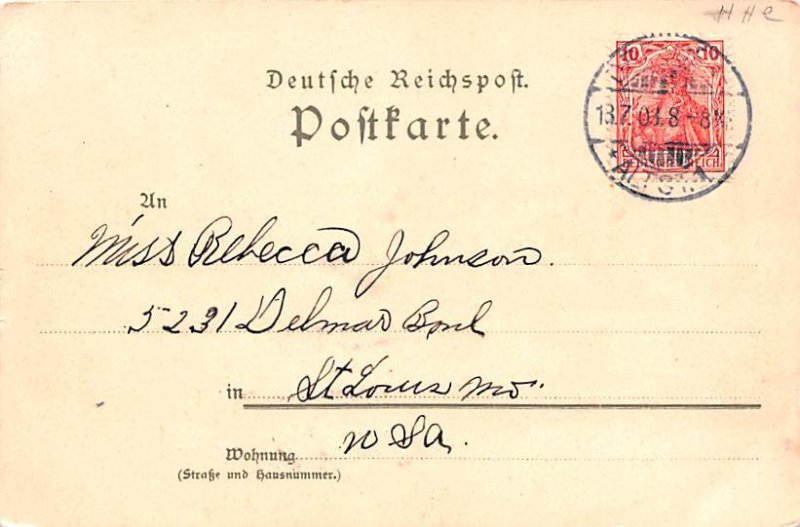 H H C
Deutsche Reichspost.
Postkarte.
10 10
13.7.03.8-8
DEUTSCHES REICH
ALTST. 1
An
Miss Rebecca Johnson.
5231 Delmar Boul
in St Louis Mo.
USA.
Wohnung
(Straße und Hausnummer.)